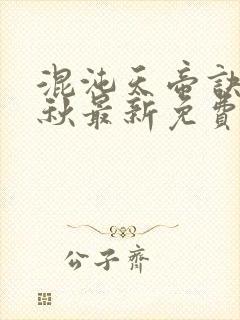 混沌天帝訣
秋最新免費
公子齊